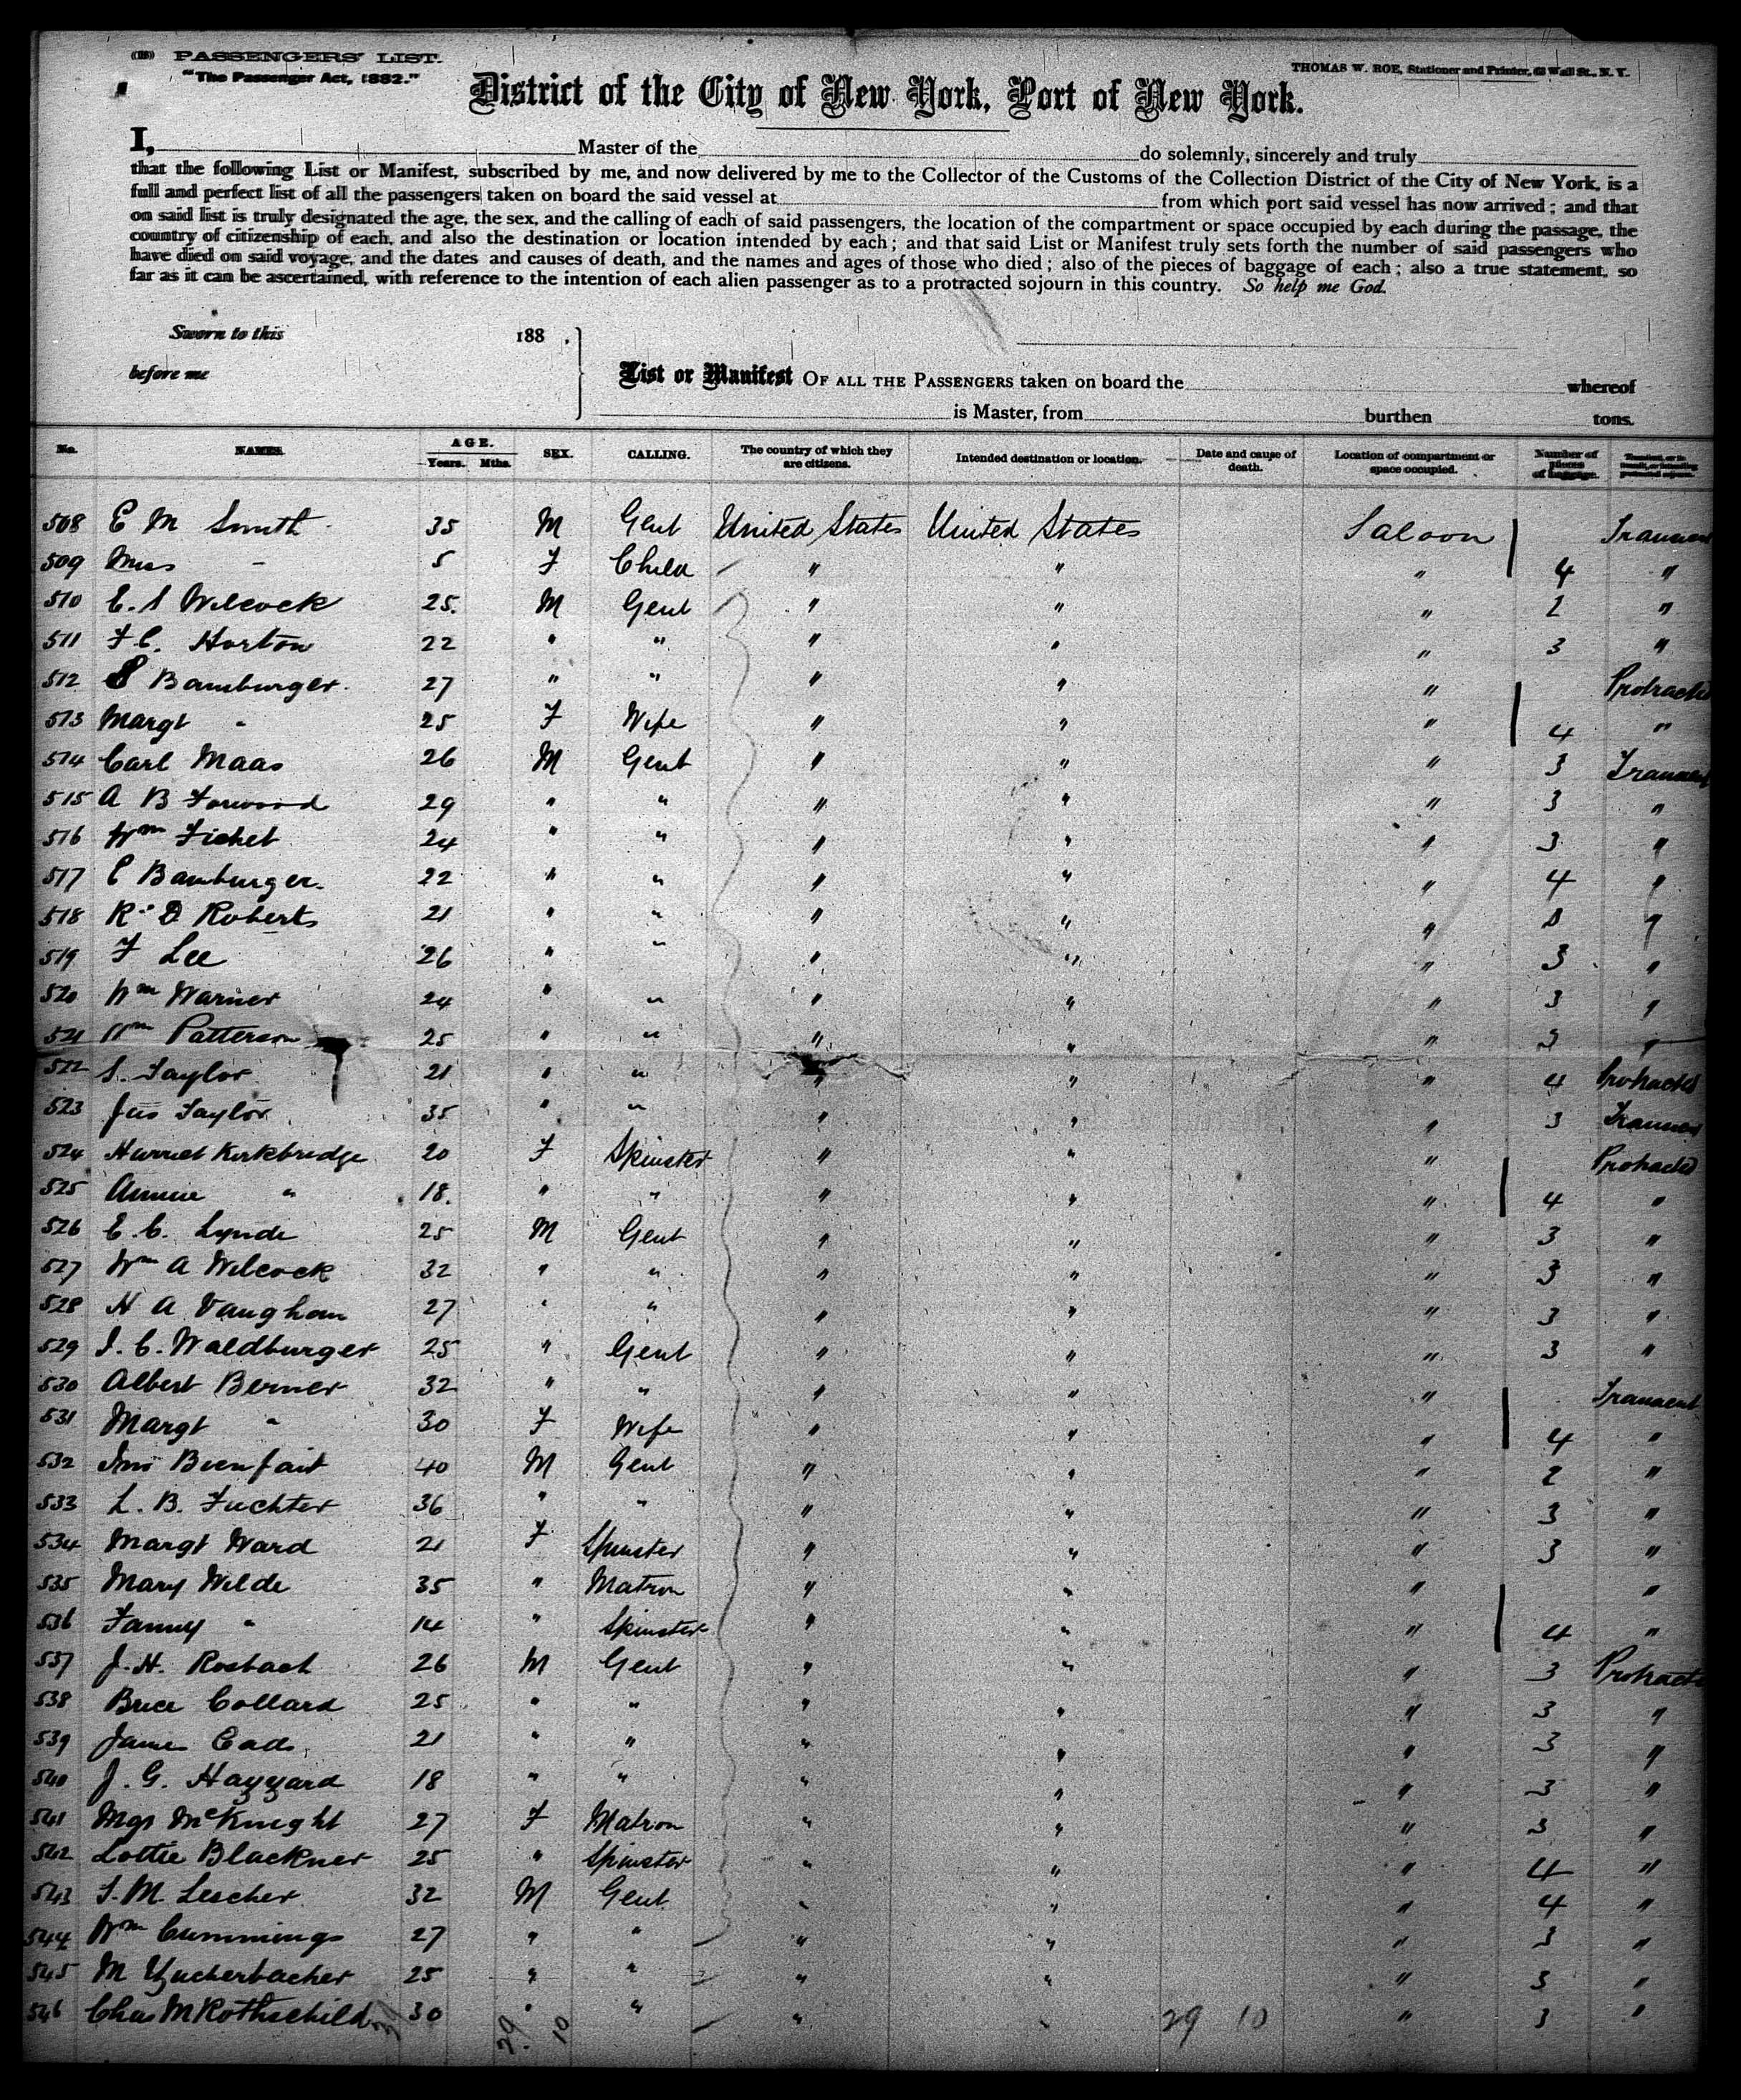 (18) PASSENGERS' LIST.
"The Passenger Act, 1882."
THOMAS W. ROE, Stationer and Printer, 63 Wall St., N. Y.
District of the City of New York, Port of New York.
I, Master of the do solemnly, sincerely and truly
that the following List or Manifest, subscribed by me, and now delivered by me to the Collector of the Customs of the Collection District of the City of New York, is a
full and perfect list of all the passengers taken on board the said vessel at from which port said vessel has now arrived; and that
on said list is truly designated the age, the sex, and the calling of each of said passengers, the location of the compartment or space occupied by each during the passage, the
country of citizenship of each, and also the destination or location intended by each; and that said List or Manifest truly sets forth the number of said passengers who
have died on said voyage, and the dates and causes of death, and the names and ages of those who died; also of the pieces of baggage of each; also a true statement, so
far as it can be ascertained, with reference to the intention of each alien passenger as to a protracted sojourn in this country. So help me God.
Sworn to this 188 .
before me
List or Manifest OF ALL THE PASSENGERS taken on board the whereof
is Master, from burthen tons.
No. NAMES. AGE. Years. Mths. SEX. CALLING. The country of which they are citizens. Intended destination or location. Date and cause of death. Location of compartment or space occupied. Number of pieces of baggage. Transient, or in transit, or intending protracted sojourn.
508 E M Smith 35 M Gent United States United States Saloon Transient
509 Miss " 5 F Child " " " 4 "
510 E. S Wilcock 25. M Gent " " " 2 "
511 F. C. Horton 22 " " " " " 3 "
512 S Bamburger. 27 " " " " " Protracted
513 Margt " 25 F Wife " " " 4 "
514 Carl Maas 26 M Gent " " " 3 Transient
515 A B Forwood 29 " " " " " 3 "
516 Wm Fichet 24 " " " " " 3 "
517 E Bamburger. 22 " " " " " 4 "
518 R. D Roberts 21 " " " " " "
519 F Lee 26 " " " " " 3 "
520 Wm Warner 24 " " " " " 3 "
521 Wm Patterson 25 " " " " " 3 "
522 S. Taylor 21 " " " " " 4 Protracted
523 Jas Taylor 35 " " " " " 3 Transient
524 Harriet Kirkbridge 20 F Spinster " " " Protracted
525 Annie " 18. " " " " " 4 "
526 E. C. Lynde 25 M Gent " " " 3 "
527 Wm A Wilcock 32 " " " " " 3 "
528 H A Vaughan 27 " " " " " 3 "
529 I. C. Waldburger 25 " Gent " " " 3 "
530 Albert Berner 32 " " " " " Transient
531 Margt " 30 F Wife " " " 4 "
532 Jno Bienfait 40 M Gent " " " 2 "
533 L. B. Fuchter 36 " " " " " 3 "
534 Margt Ward 21 F Spinster " " " 3 "
535 Mary Wilde 35 " Matron " " " "
536 Fanny " 14 " Spinster " " " 4 "
537 J. H. Rosbach 26 M Gent " " " 3 Protracted
538 Brice Collard 25 " " " " " 3 "
539 James Eads. 21 " " " " " 3 "
540 J. G. Hazzard 18 " " " " " 3 "
541 Mgs McKnight 27 F Matron " " " 3 "
542 Lottie Blackner 25 " Spinster " " " 4 "
543 S. M. Lescher 32 M Gent " " " 4 "
544 Wm Cummings 27 " " " " " 3 "
545 M Zucherbacher 25 " " " " " 3 "
546 Chas M Rothschild 30 " " " " " 3 "
29 10 29 10